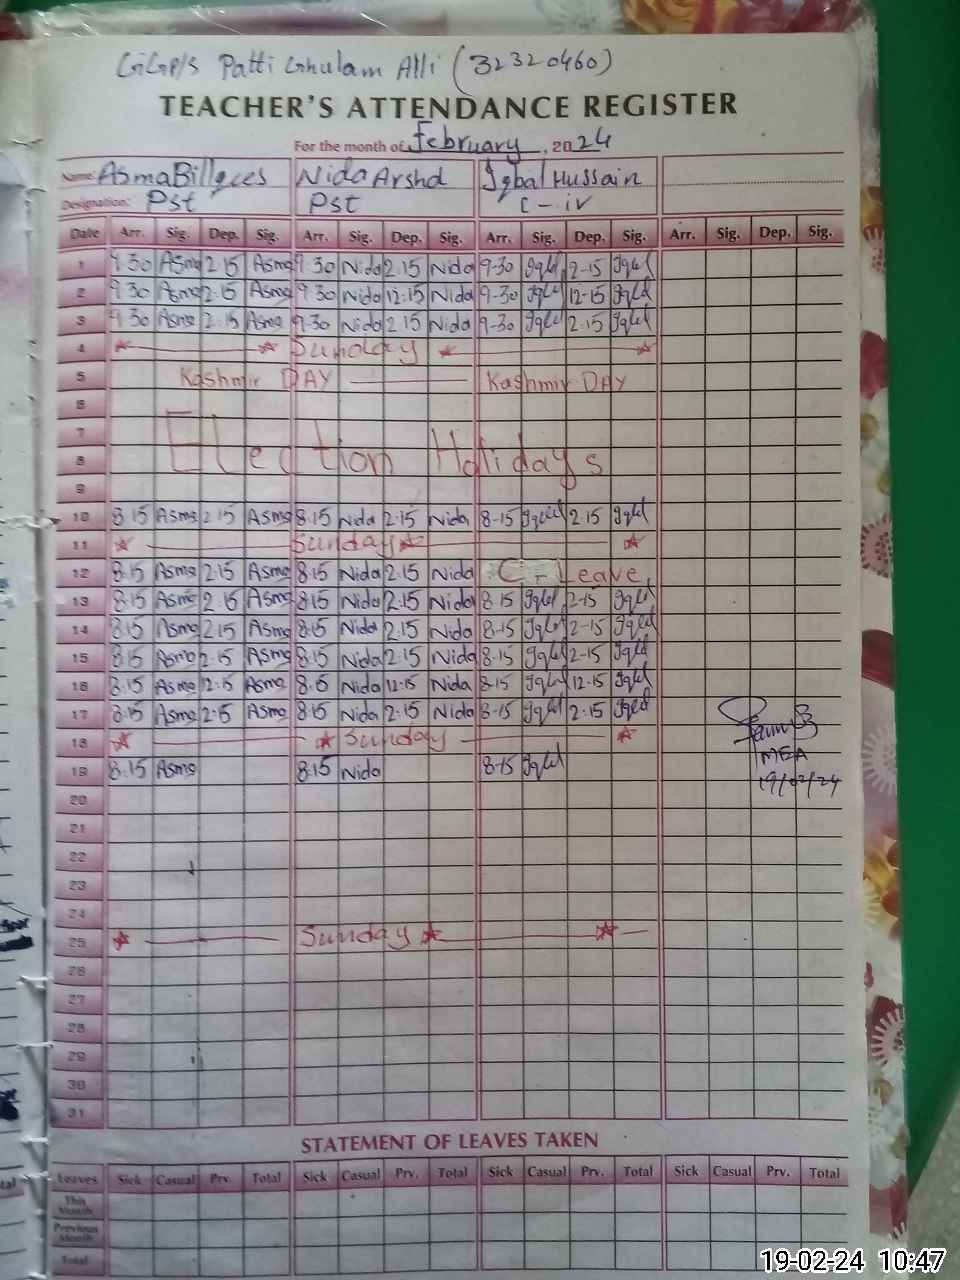 GGP/S Patti Ghulam Alli (32320460)
TEACHER'S ATTENDANCE REGISTER
For the month of February, 2024
Name: Asma Billqees Nida Arshd Iqbal Hussain
Designation: Pst Pst C-iv
Date Arr. Sig. Dep. Sig. Arr. Sig. Dep. Sig. Arr. Sig. Dep. Sig. Arr. Sig. Dep. Sig.
1 9.30 Asma 2.15 Asma 9.30 Nida 2.15 Nida 9-30 Iqbl 2-15 Iqbl
2 9.30 Asma 12.15 Asma 9.30 Nida 12.15 Nida 9-30 Iqbl 12-15 Iqbl
3 9.30 Asma 2.15 Asma 9-30 Nida 2.15 Nida 9-30 Iqbl 2.15 Iqbl
4 Sunday
5 Kashmir DAY Kashmir DAY
6
7
8 Election Holidays
9
10 8.15 Asma 2.15 Asma 8.15 Nida 2.15 Nida 8-15 Iqbl 2.15 Iqbl
11 Sunday
12 8.15 Asma 2.15 Asma 8.15 Nida 2.15 Nida C - Leave
13 8.15 Asma 2.15 Asma 8.15 Nida 2.15 Nida 8-15 Iqbl 2-15 Iqbl
14 8.15 Asma 2.15 Asma 8.15 Nida 2.15 Nida 8-15 Iqbl 2-15 Iqbl
15 8.15 Asma 2.15 Asma 8.15 Nida 2.15 Nida 8-15 Iqbl 2-15 Iqbl
16 8.15 Asma 12.15 Asma 8.15 Nida 12.15 Nida 8-15 Iqbl 12.15 Iqbl
17 8.15 Asma 2.15 Asma 8.15 Nida 2.15 Nida 8-15 Iqbl 2.15 Iqbl
18 Sunday
MEA
19 8.15 Asma 8.15 Nida 8-15 Iqbl
19/02/24
20
21
22
23
24
25 Sunday
26
27
28
29
30
31
STATEMENT OF LEAVES TAKEN
Leaves Sick Casual Prv. Total Sick Casual Prv. Total Sick Casual Prv. Total Sick Casual Prv. Total
This
Month
Previous
Month
Total
19-02-24 10:47